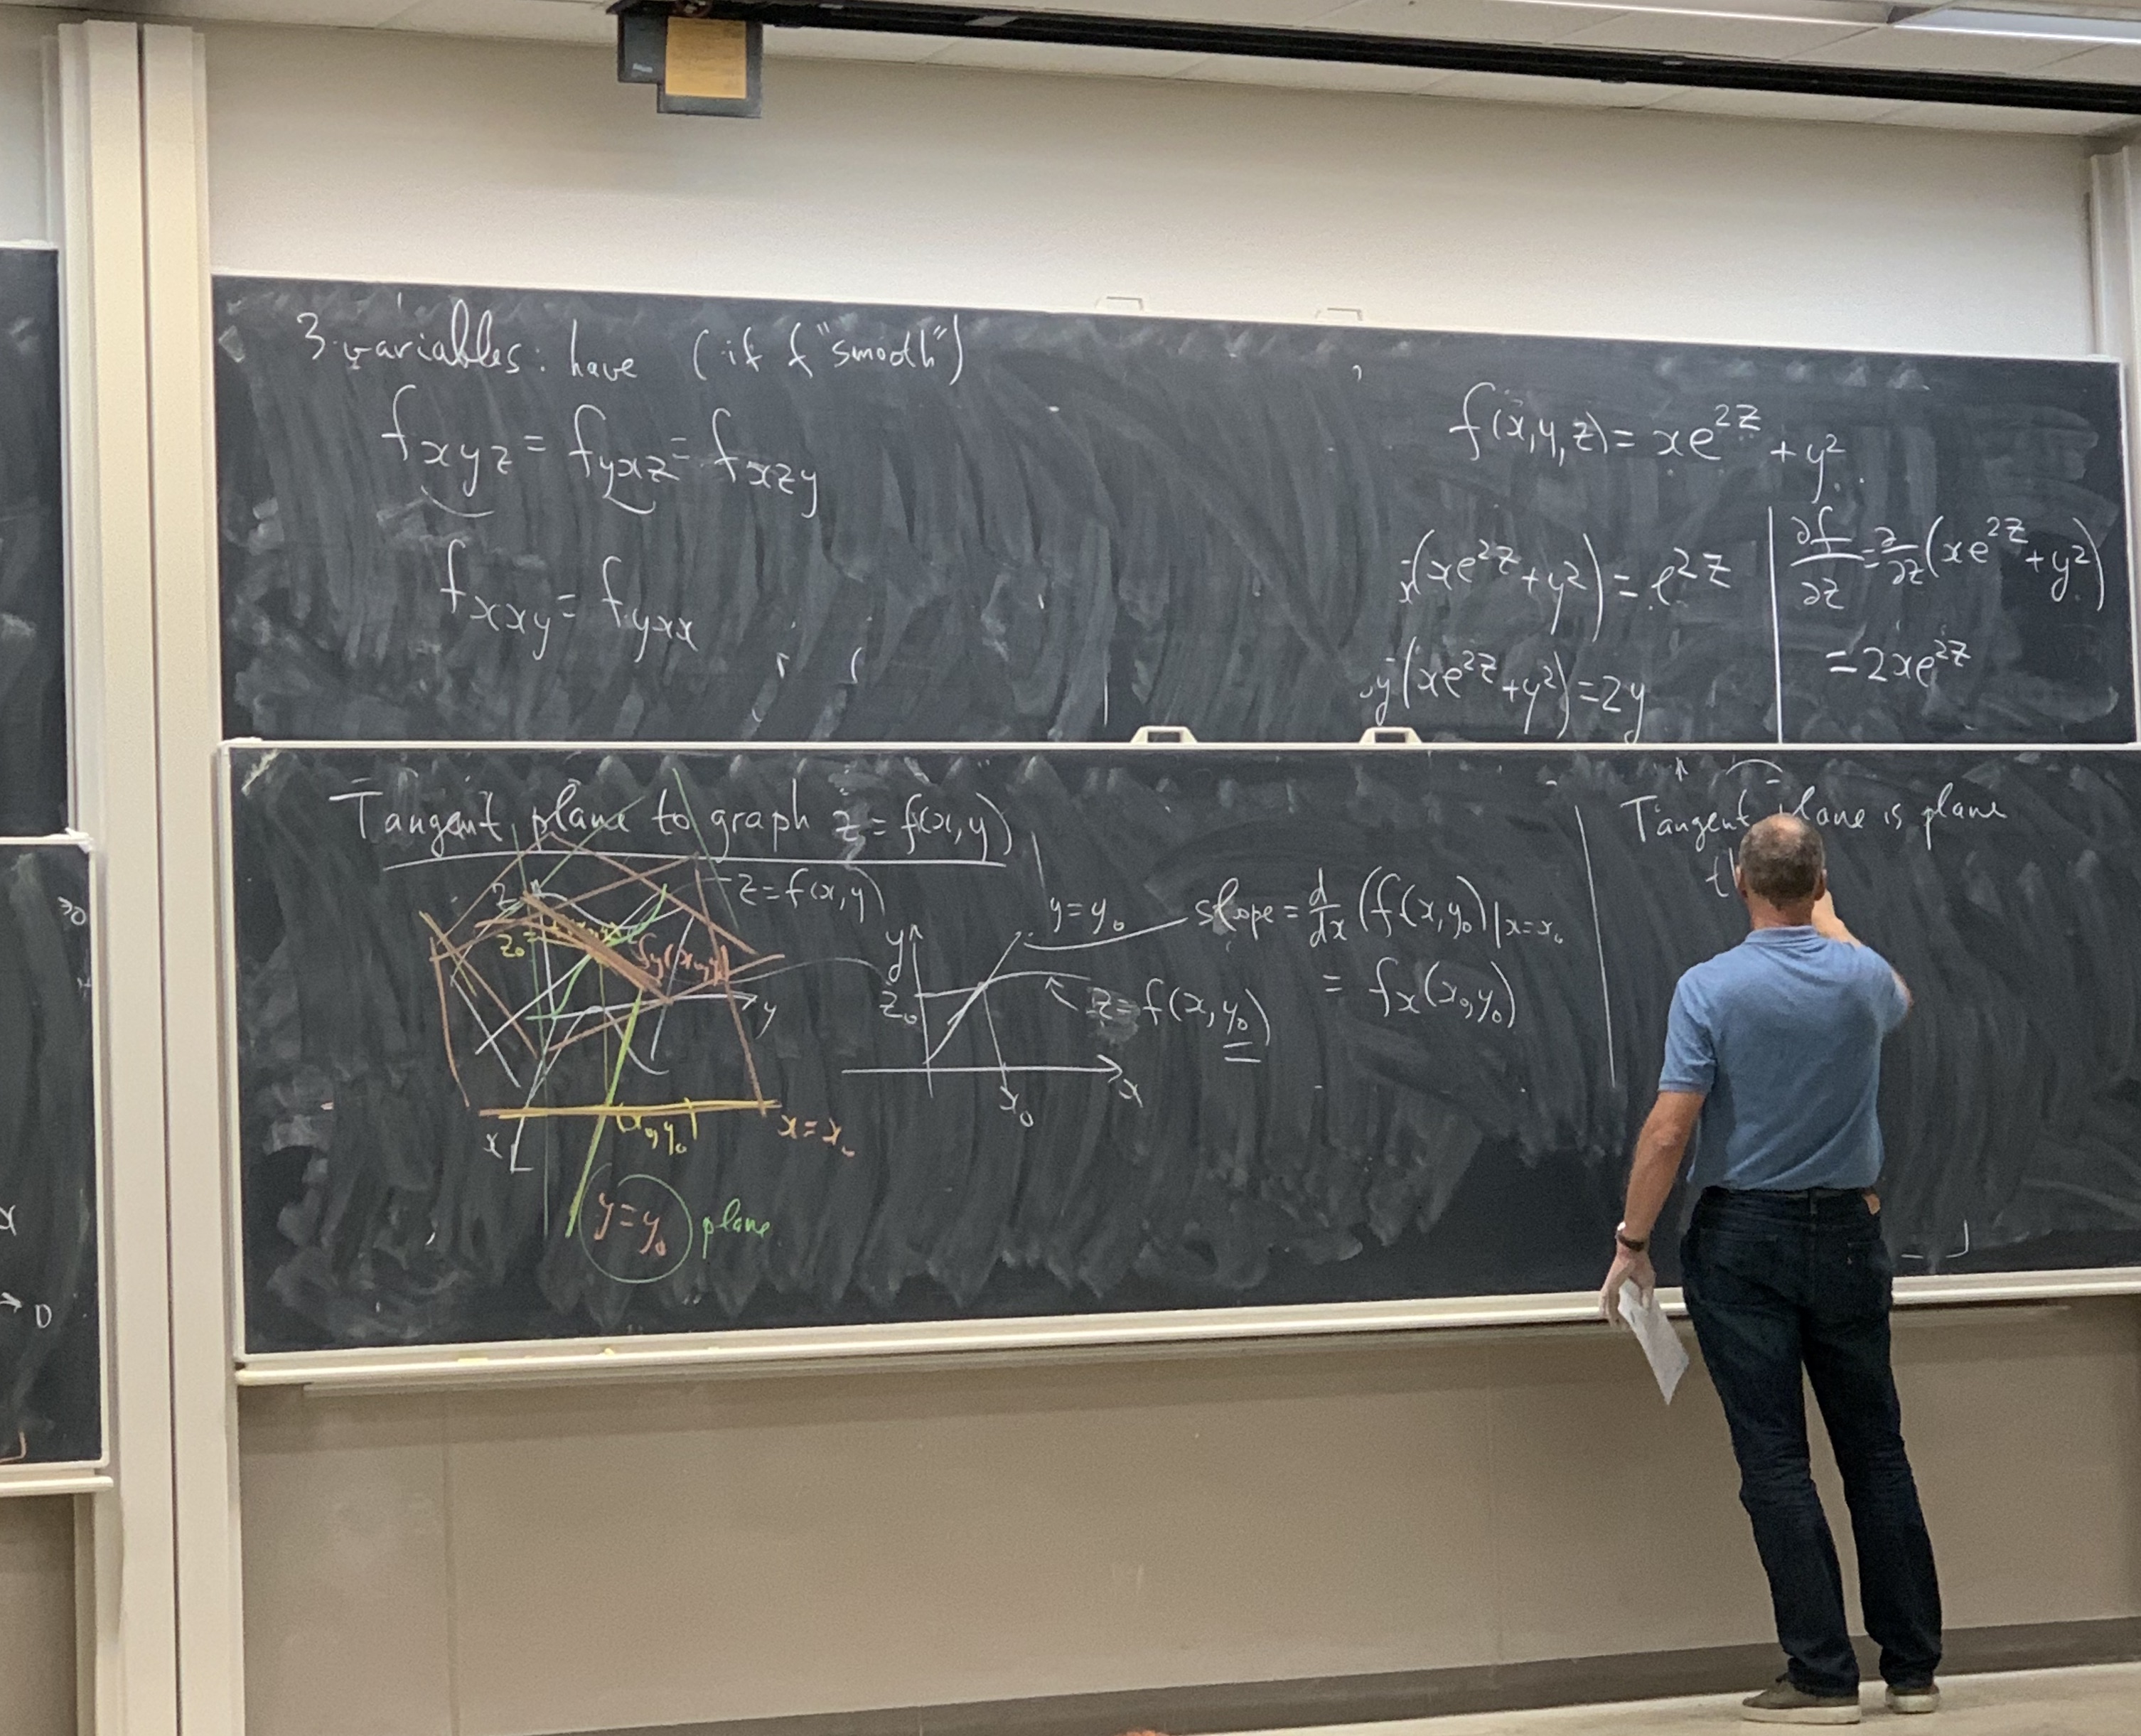 3 variables: have (if f "smooth")
fxyz = fyxz = fxzy
fxxy = fyxx
f(x,y,z) = xe^2z + y^2
(xe^2z + y^2) = e^2z
y(xe^2z + y^2) = 2y
∂f/∂z = ∂/∂z (xe^2z + y^2)
= 2xe^2z
Tangent plane to graph z = f(x,y)
z = f(x,y)
z
z₀
y
x
(x₀,y₀)
x = x₀
y = y₀ plane
y
z₀
x₀
x
y = y₀
z = f(x,y₀)
slope = d/dx (f(x,y₀))|x=x₀
= fx(x₀,y₀)
Tangent plane is plane
→ 0